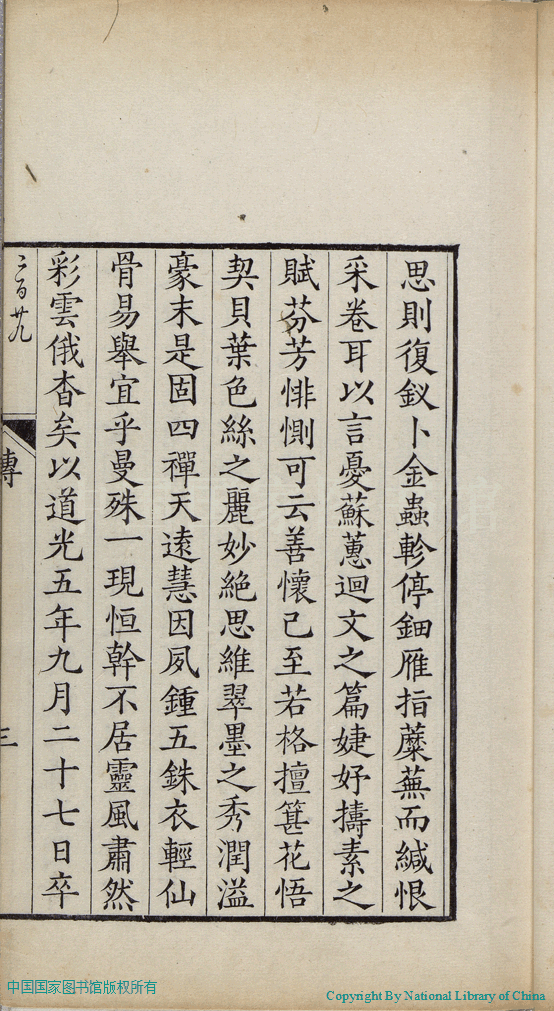 思則復釵卜金蟲軫停鈿雁指蘼蕪而緘恨
采卷耳以言憂蘇蕙迴文之篇婕妤擣素之
賦芬芳悱惻可云善懷已至若格擅簪花悟
契貝葉色絲之麗妙絕思維翠墨之秀潤溢
豪末是固四禪天遠慧因夙鍾五銖衣輕仙
骨易舉宜乎曼殊一現恒幹不居靈風肅然
彩雲俄杳矣以道光五年九月二十七日卒
二百廿九
傳
三
中国国家图书馆版权所有
Copyright By National Library of China